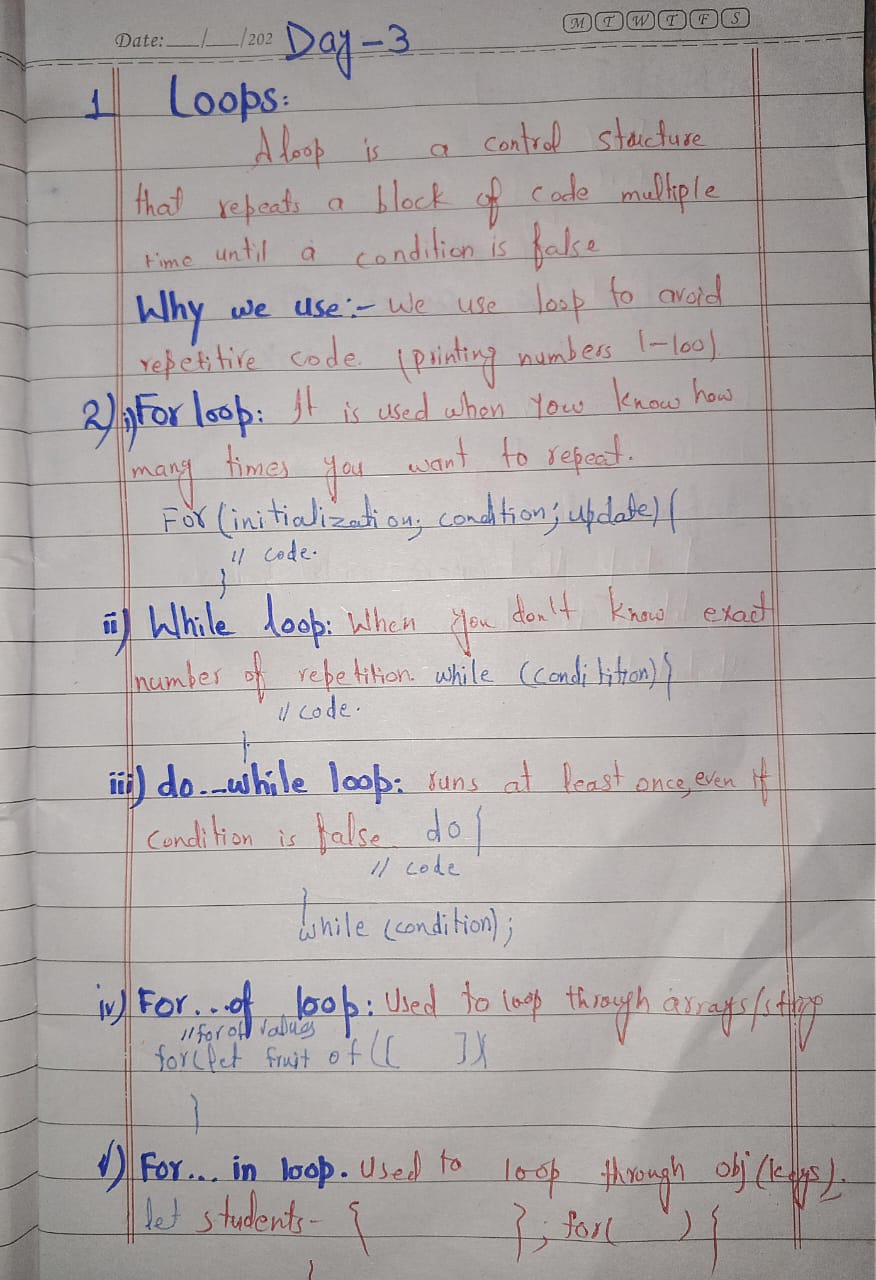 Date: __/__/202 Day-3 M T W T F S
1 Loops:
A loop is a control structure
that repeats a block of code multiple
time until a condition is false
Why we use:- We use loop to avoid
repetitive code. (printing numbers 1-100)
2) i) For loop: It is used when you know how
many times you want to repeat.
For (initialization; condition; update) {
// code.
}
ii) While loop: When you don't know exact
number of repetition. while (condition) {
// code.
}
iii) do...while loop: runs at least once, even if
condition is false do {
// code
}
while (condition);
iv) For...of loop: Used to loop through arrays/string
// for of values
for(let fruit of [[ ]){
}
v) For... in loop. Used to loop through obj (keys).
let students- { }; for( ) {
}